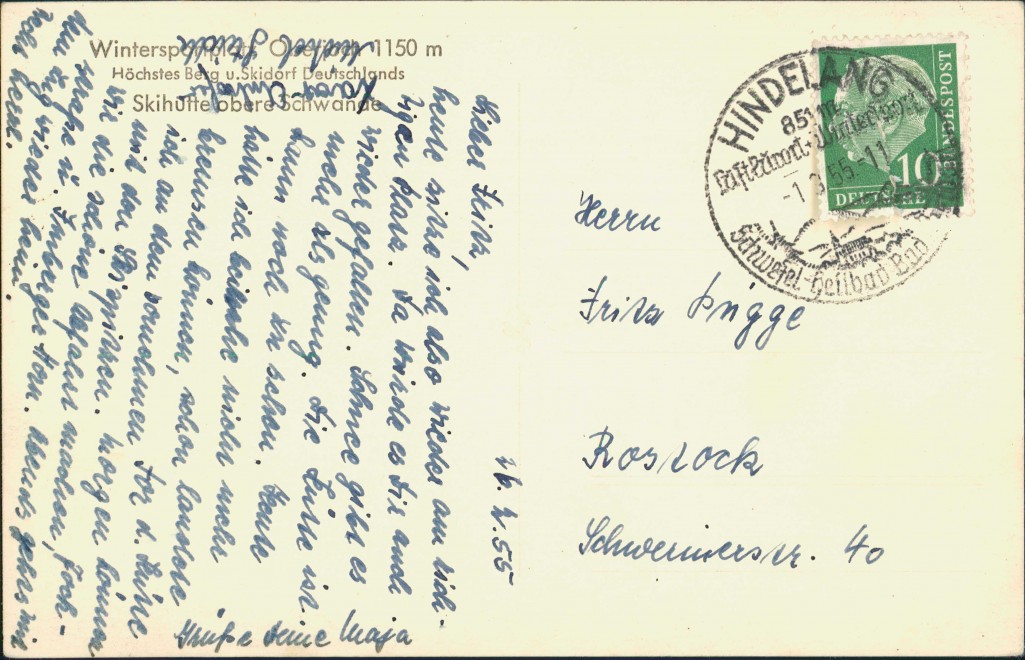 Wintersportplatz Oberjoch 1150 m
Höchstes Berg u. Skidorf Deutschlands
Skihütte obere Schwande
26.2.55
Lieber Fritz,
heute sitze ich also wieder am rich-
tigen Platz. Da würde es Dir auch
wieder gefallen. Schnee gibt es
mehr als genug. Die Hütte ist
kaum noch zu sehen. Heute
hätte ich beinahe nicht mehr
bremsen können, schon landete
ich an dem vornehmen Tor d. Hütte
mit den Skispitzen. Morgen können
wir die schöne Abfahrt machen, Joch-
straße u.
den Zug wieder heim. Abends geht's mit
Grüße Deine Maja
Herrn
Fritz Pügge
Rostock
Schwerinerstr. 40
HINDELANG
851 m
Luftkurort + Wintersport
-1.3.55-11
Schwefel-Heilbad Bad
DEUTSCHE BUNDESPOST
10